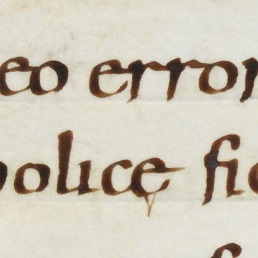 eo error
olicę fi